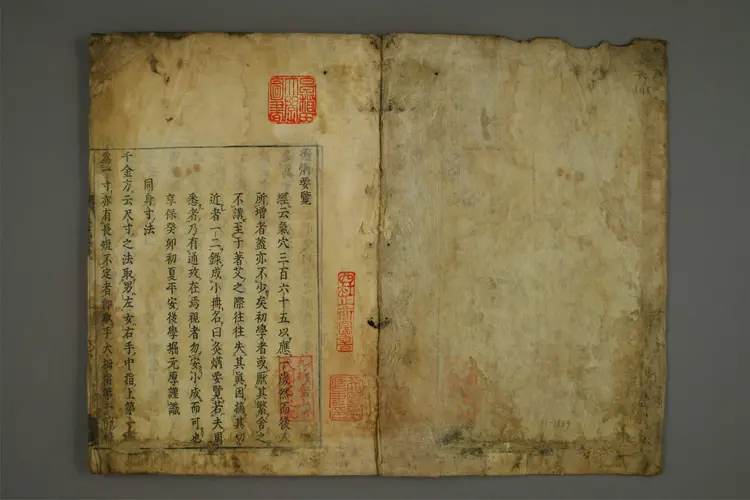 要覽
經云氣穴三百六十五以應一歲然而後人
所增者蓋亦不少矣初學者或厭其繁舍之
不講至于著艾之際往往失其眞因摘其切
近者一二錄成小冊名曰灸焫要覽若夫周
悉者乃有通攷在焉視者勿安小成而可也
享保癸卯初夏平安後學堀元厚謹識
同身寸法
千金方云尺寸之法取男左女右手中指上第一
爲一寸亦有長短不定者即取手大拇指第一節橫